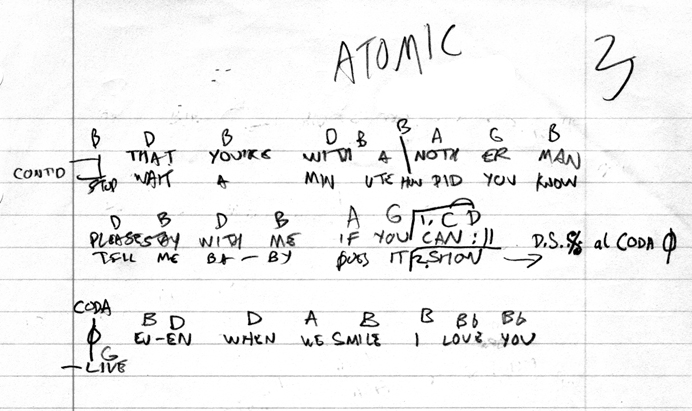 ATOMIC 3
B D B D B B A G B
CONT'D THAT YOU'RE WITH A NOTH ER MAN
STOP WAIT A MIN UTE HW DID YOU KNOW
D B D B A G 1. C D
PLEASE STAY WITH ME IF YOU CAN :||
TELL ME BA - BY DOES IT 2. SHOW → D.S. 𝄋 al CODA 𝄌
CODA
𝄌 B D D A B B Bb Bb
EV-EN WHEN WE SMILE I LOVE YOU
G
LIVE